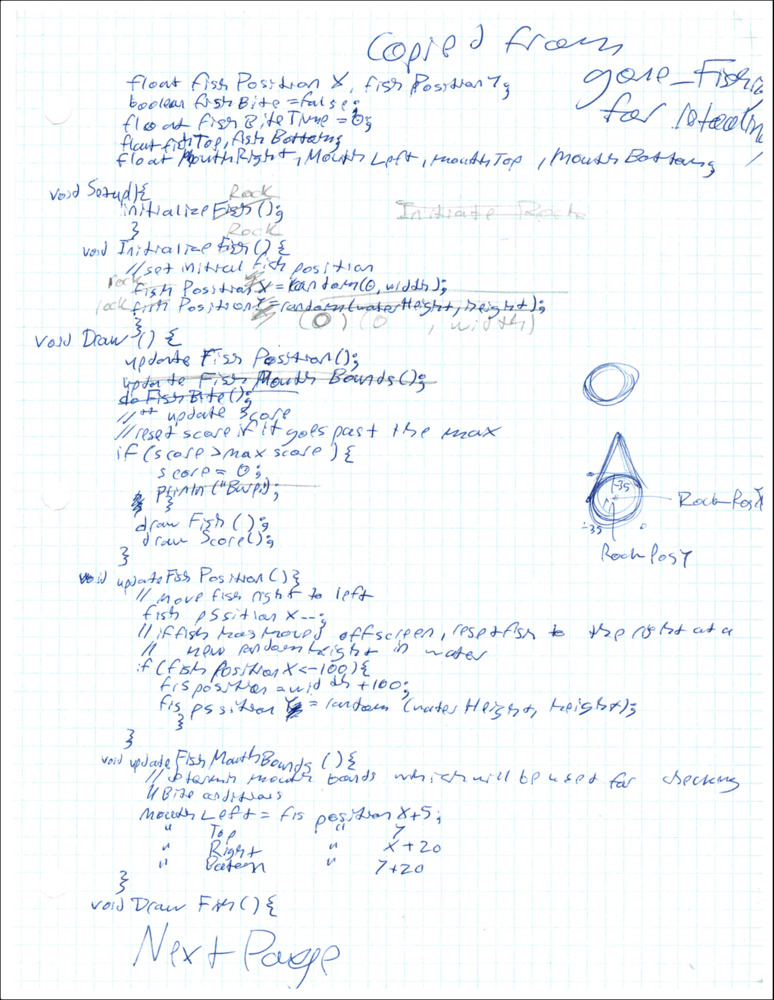 Copied from
gone_Fishin
for
float fish Position X, fish Position Y;
boolean fish Bite = false;
float fish BiteTime = 0;
float fishTop, fish Bottom;
float MouthRight, Mouth Left, mouthTop, Mouth Bottom;
void Setup(){
Rock
initialize Fish();
Initiate Rock
}
Rock
void Initialize Fish() {
// set initial fish position
rock
fish Position X = random(0, width);
rock
fish Position Y = random(waterHeight, height);
(0) (0 , width)
}
void Draw () {
update Fish Position();
update Fish Mouth Bounds();
do Fish Bite();
// ** update Score
// reset score if it goes past the max
if (score > max score) {
score = 0;
println ("Burp");
}
draw Fish ();
draw Score();
}
-35
Rock PosX
-35
0
Rock Pos Y
void update Fish Position () {
// move fish right to left
fish pssition X--;
// if fish has moved offscreen, reset fish to the right at a
// new random height in water
if (fish Position X <-100) {
fis position = width +100;
fis pssition Y = random (water Height, height);
}
}
void update Fish Mouth Bounds () {
// mouth bonds which will be used for checking
// Bite conditions
Mouth Left = fis position X+5;
" Top " Y
" Right " X+20
" Bottom Y+20
}
}
void Draw Fish () {
Next Page